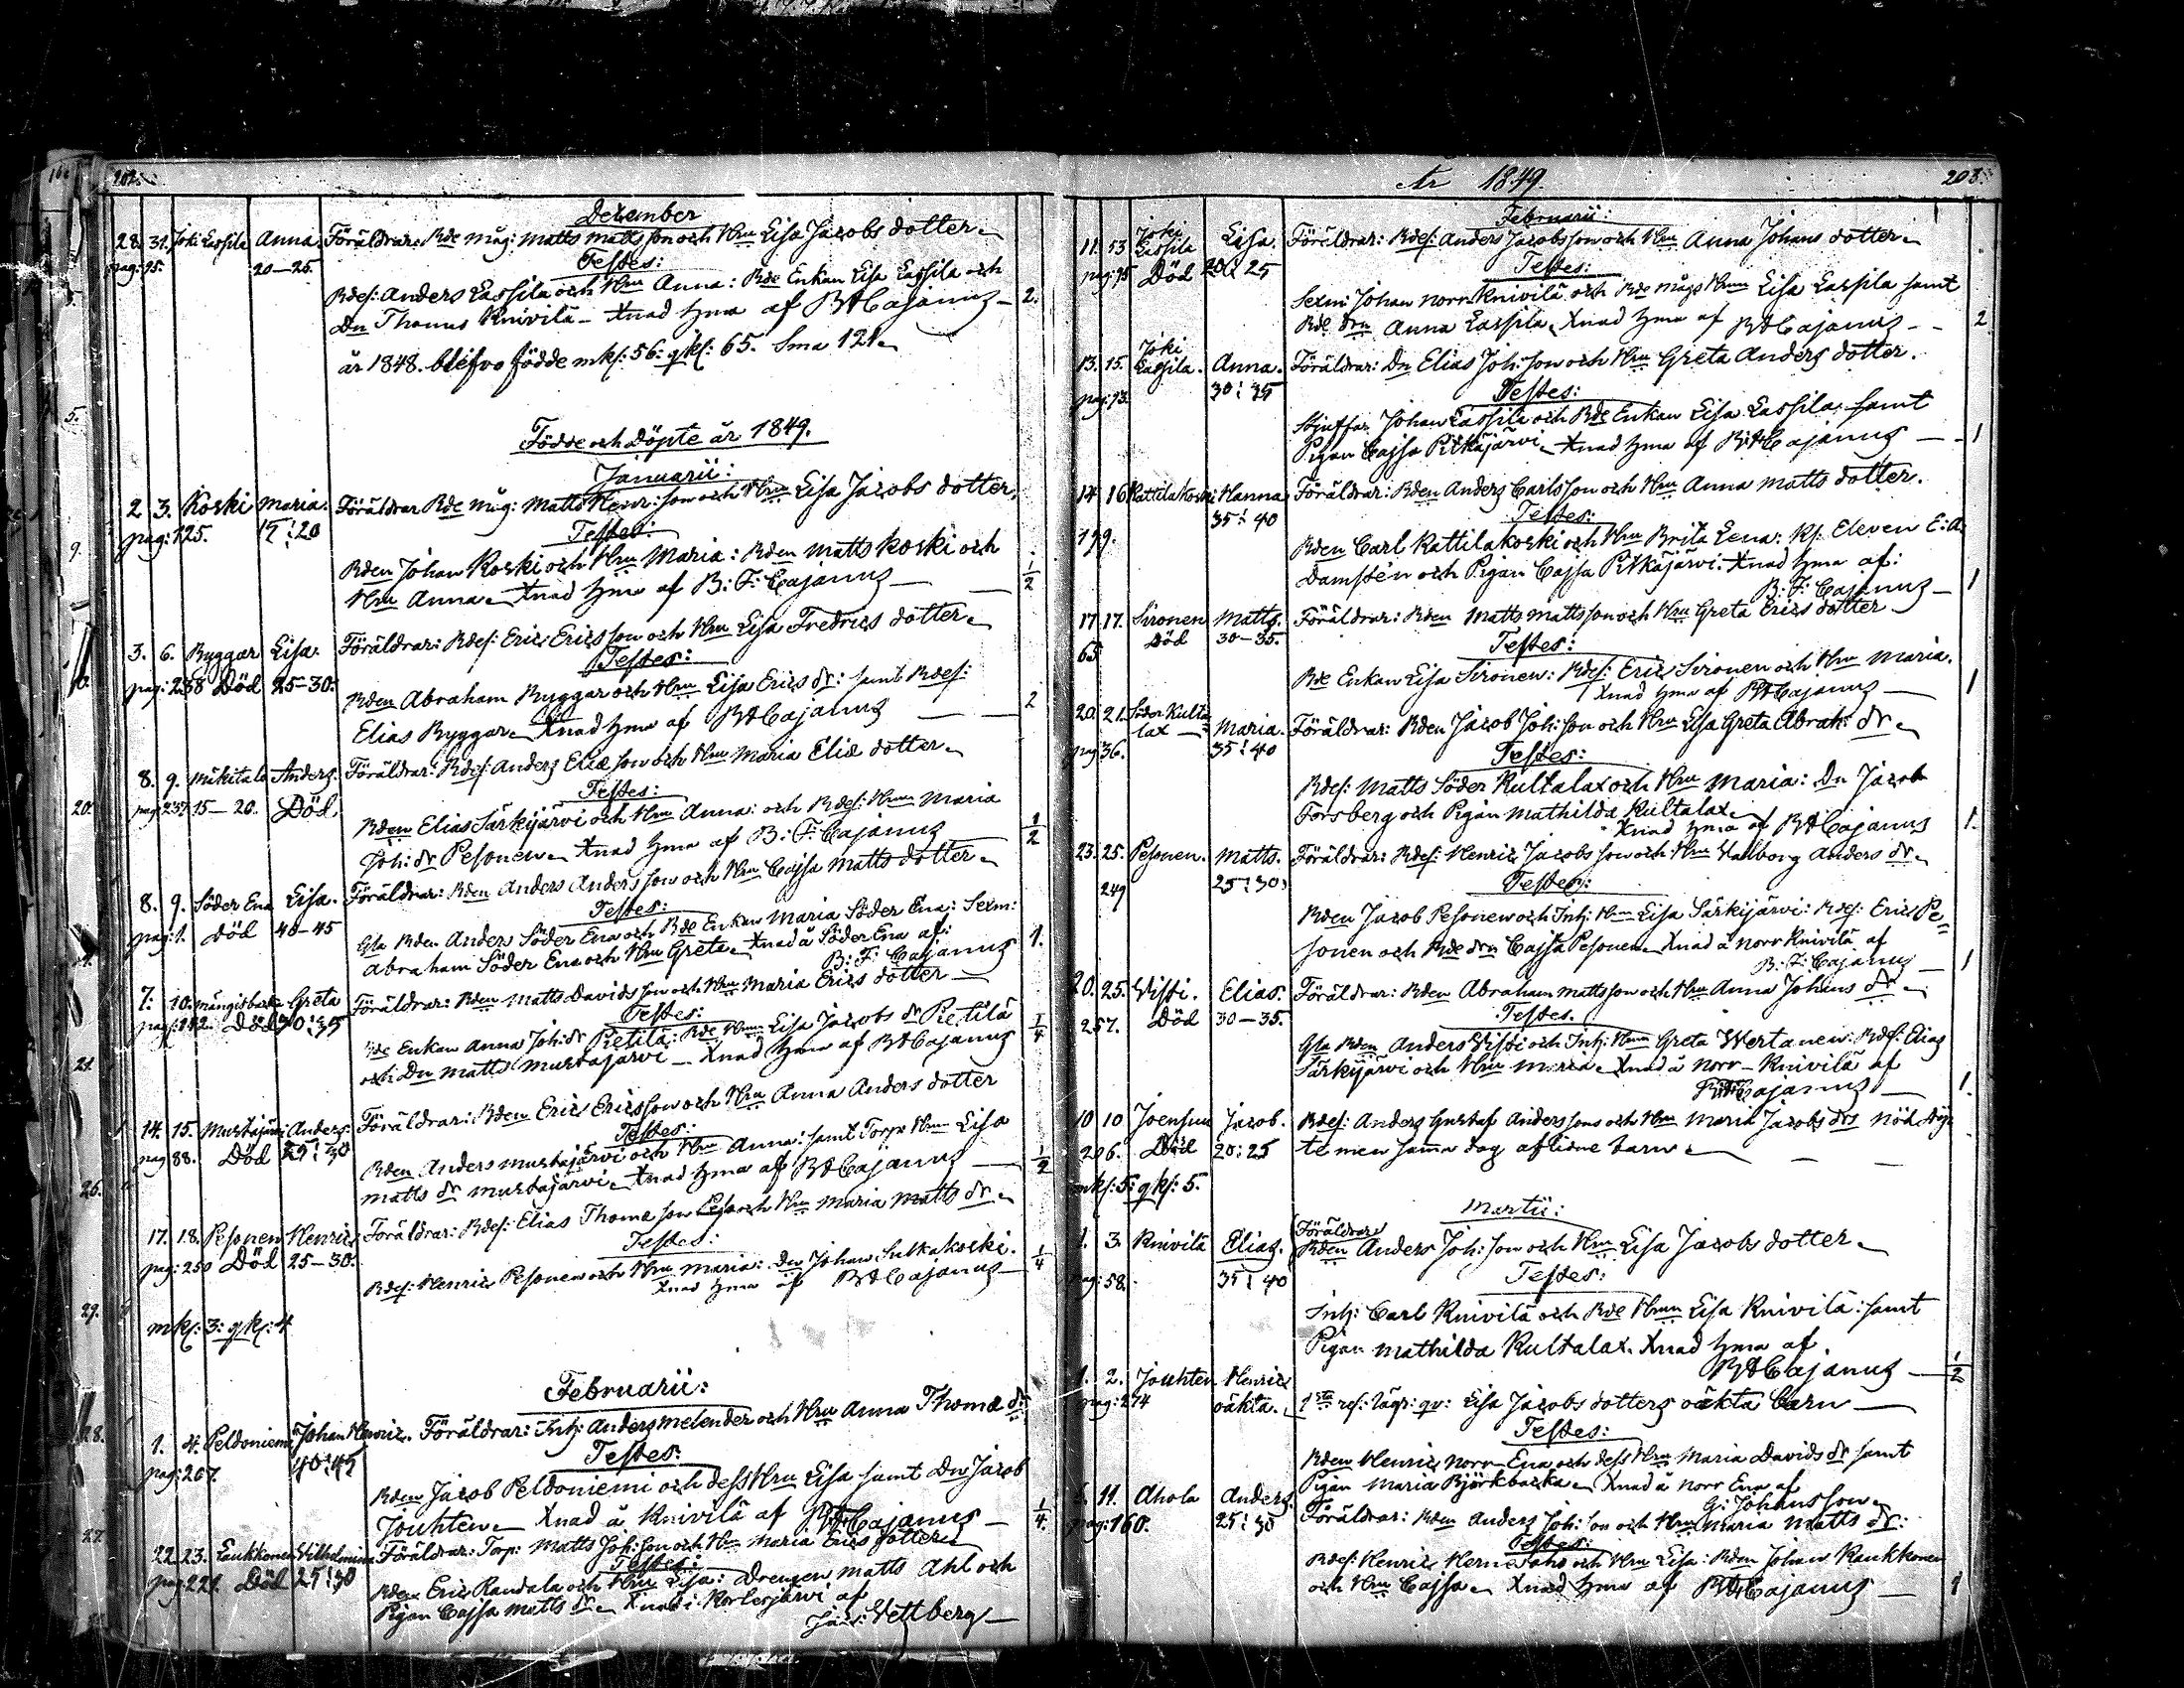 202.
December
28. 31. Joki Lassila Anna. Föräldrar: Rde måg: Matts Mattsson och Hru Lisa Jacobs dotter
pag: 95. 20–25. Testes:
Rdef: Anders Lassila och Hru Anna: Rde Enkan Lisa Lassila och
Dn Thomas Knivilä – Xnad hma af BFCajanus – 2.
år 1848. blefvo födde mkf: 56: qkf: 65. Sma 121
Födde och Döpte år 1849.
Januarii:
2 3. Koski Maria. Föräldrar Rde måg: Matts Henr: son och Hru Lisa Jacobs dotter,
pag: 125. 15:20 Testes:
Rden Johan Koski och Hru Maria: Rden Matts Koski och
Hru Anna Xnad hma af B: F: Cajanus – 1/2
3. 6. Ryggar Lisa. Föräldrar: Rdef: Eric Ericsson och Hru Lisa Fredrics dotter
pag: 238 Död 25–30. Testes:
Rden Abraham Ryggar och Hru Lisa Erics dr: samt Rdef:
Elias Ryggar Xnad hma af BFCajanus – 2
8. 9. Mäkitalo Anders. Föräldrar: Rdef: Anders Eliæ son och Hru Maria Eliæ dotter
pag 237 15–20. Död Testes:
Rden Elias Särkijärvi och Hru Anna: och Rdef: Hrun Maria
Joh: dr Pesonen Xnad hma af B: F: Cajanus 1/2
8. 9. Söder Ena Lisa. Föräldrar: Rden Anders Andersson och Hru Cajsa Matts dotter
pag: 1. Död 40–45 Testes:
Gla Rden Anders Söder Ena och Rde Enkan Maria Söder Ena: Sexm:
Abraham Söder Ena och Hru Greta Xnad å Söder Ena af:
B: F: Cajanus 1.
7. 10. Mångisbacka Greta Föräldrar: Rden Matts Davidsson och Hru Maria Erics dotter
pag: 112. Död 30:35 Testes:
Rde Enkan Anna Joh: dr Pietilä: Rde Hrun Lisa Jacobs dr Pietilä
och Dn Matts Mustajärvi – Xnad hma af BFCajanus 1/4
14. 15. Mustajärvi Anders. Föräldrar: Rden Eric Ericsson och Hru Anna Anders dotter
pag 88. Död 25:30 Testes:
Rden Anders Mustajärvi och Hru Anna: samt Torpr Hrun Lisa
Matts dr Mustajärvi Xnad hma af BFCajanus – 1/2
17. 18. Pesonen Henric Föräldrar: Rdef: Elias Thomæ son Peso och Hru Maria Matts dr
pag: 250 Död 25–30. Testes:
Rdef: Henric Pesonen och Hru Maria: Dn Johan Sulkakoski.
Xnad hma af BFCajanus – 1/4
mkf: 3: qkf: 4
Februarii:
1. 4. Peldoniemi Johan Henric. Föräldrar: Inh: Anders Melender och Hru Anna Thomæ dr
pag: 207. 40:45 Testes:
Rden Jacob Peldoniemi och dess Hru Lisa samt Dn Jacob
Jouhten Xnad å Knivilä af BFCajanus – 1/4
22. 23. Laukkonen Wilhelmina Föräldrar: Torp: Matts Joh: son och Hru Maria Erics dotter
pag 221. Död 25:30 Testes:
Rden Eric Randala och Hru Lisa: Drengen Matts Ahl och
Pigan Cajsa Matts dr Xnad i Kortesjärvi af
Jac: Wettberg –
År 1849. 203.
Februarii:
11. 13 Joki Lassila Lisa. Föräldrar: Rdef: Anders Jacobsson och Hru Anna Johans dotter
pag 95 Död 20:25 Testes:
Sexm: Johan Norr Knivilä och Rde mågs Hrun Lisa Lassila samt
Rde drn Anna Lassila Xnad hma af BFCajanus – 2
13. 15. Joki Lassila. Anna. Föräldrar: Dn Elias Joh: son och Hru Greta Anders dotter.
pag: 93. 30:35 Testes:
Skjuffar. Johan Lassila och Rde Enkan Lisa Lassila samt
Pigan Cajsa Pitkäjärvi Xnad hma af BFCajanus – 1
14 16 Kattilakoski Hanna Föräldrar: Rden Anders Carlsson och Hru Anna Matts dotter.
199. 35:40 Testes:
Rden Carl Kattilakoski och Hru Brita Lena: Kf: Eleven E: A:
Damstén och Pigan Cajsa Pitkäjärvi: Xnad hma af:
B: F: Cajanus – 1
17 17. Sironen Matts. Föräldrar: Rden Matts Mattsson och Hru Greta Erics dotter
65 Död 30–35. Testes:
Rde Enkan Lisa Sironen: Rdef: Eric Sironen och Hru Maria.
Xnad hma af BFCajanus – 1
20. 21. Söder Kultalax Maria. Föräldrar: Rden Jacob Joh: son och Hru Lisa Greta Abrah: dr
pag 36. 35:40 Testes:
Rdef: Matts Söder Kultalax och Hru Maria: Dn Jacob
Forsberg och Pigan Mathilda Kultalax
Xnad hma af BFCajanus 1.
23. 25. Pesonen. Matts. Föräldrar: Rdef: Henric Jacobs son och Hru Walborg Anders dr
249 25:30 Testes:
Rden Jacob Pesonen och Inh: Hrun Lisa Särkijärvi: Rdef: Eric Pe=
sonen och Rde drn Cajsa Pesonen Xnad å Norr Knivilä af
B: F: Cajanus – 1
20. 25. Visti. Elias. Föräldrar: Rden Abraham Mattsson och Hru Anna Johans dr
257. Död 30–35. Testes.
Gla Rden Anders Visti och Inh: Hrun Greta Wertanen: Rdef: Elias
Särkijärvi och Hru Maria Xnad å Norr-Knivilä af
BFCajanus – 1.
10 10 Joensuu Jacob. Rdef: Anders Gustaf Anderssons och Hru Maria Jacobs drs nöddöp
206. Död 20:25 te men samma dag aflidne barn
mkf: 5: qkf: 5.
Martii:
1. 3. Knivilä Elias. Föräldrar
Rden Anders Joh: son och Hru Lisa Jacobs dotter
pag: 58. 35:40 Testes:
Inh: Carl Knivilä och Rde Hrun Lisa Knivilä: samt
Pigan Mathilda Kultalax. Xnad hma af
BFCajanus – 1/2
1. 2. Jouhten Henric
pag: 274 oäkta. 1sta res: lägr: qv: Lisa Jacobs dotters oäkta barn
Testes:
Rden Henric Norr-Ena och dess Hru Maria Davids dr samt
Pigan Maria Björkbacka Xnad å Norr Ena af
G: Johansson
11. Ahola Anders. Föräldrar: Rden Anders Joh: son och Hru Maria Matts dr:
pag: 160. 25:30 Testes:
Rdef: Henric Hernesaho och Hru Lisa: Rden Johan Kaukkonen
och Hru Cajsa Xnad hma af BFCajanus – 1